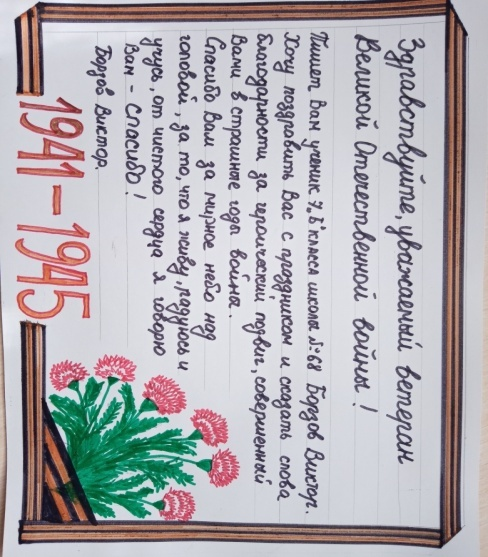 Здравствуйте, уважаемый ветеран
Великой Отечественной войны!
Пишет Вам ученик 7„Б" класса школы №68 Бордов Виктор.
Хочу поздравить Вас с праздником и сказать слова
благодарности за героический подвиг, совершенный
Вами в страшные годы война.
Спасибо Вам за мирное небо над
головой, за то, что я живу, радуюсь и
учусь, от чистого сердца я говорю
Вам - спасибо!
Бордов Виктор.
1941-1945